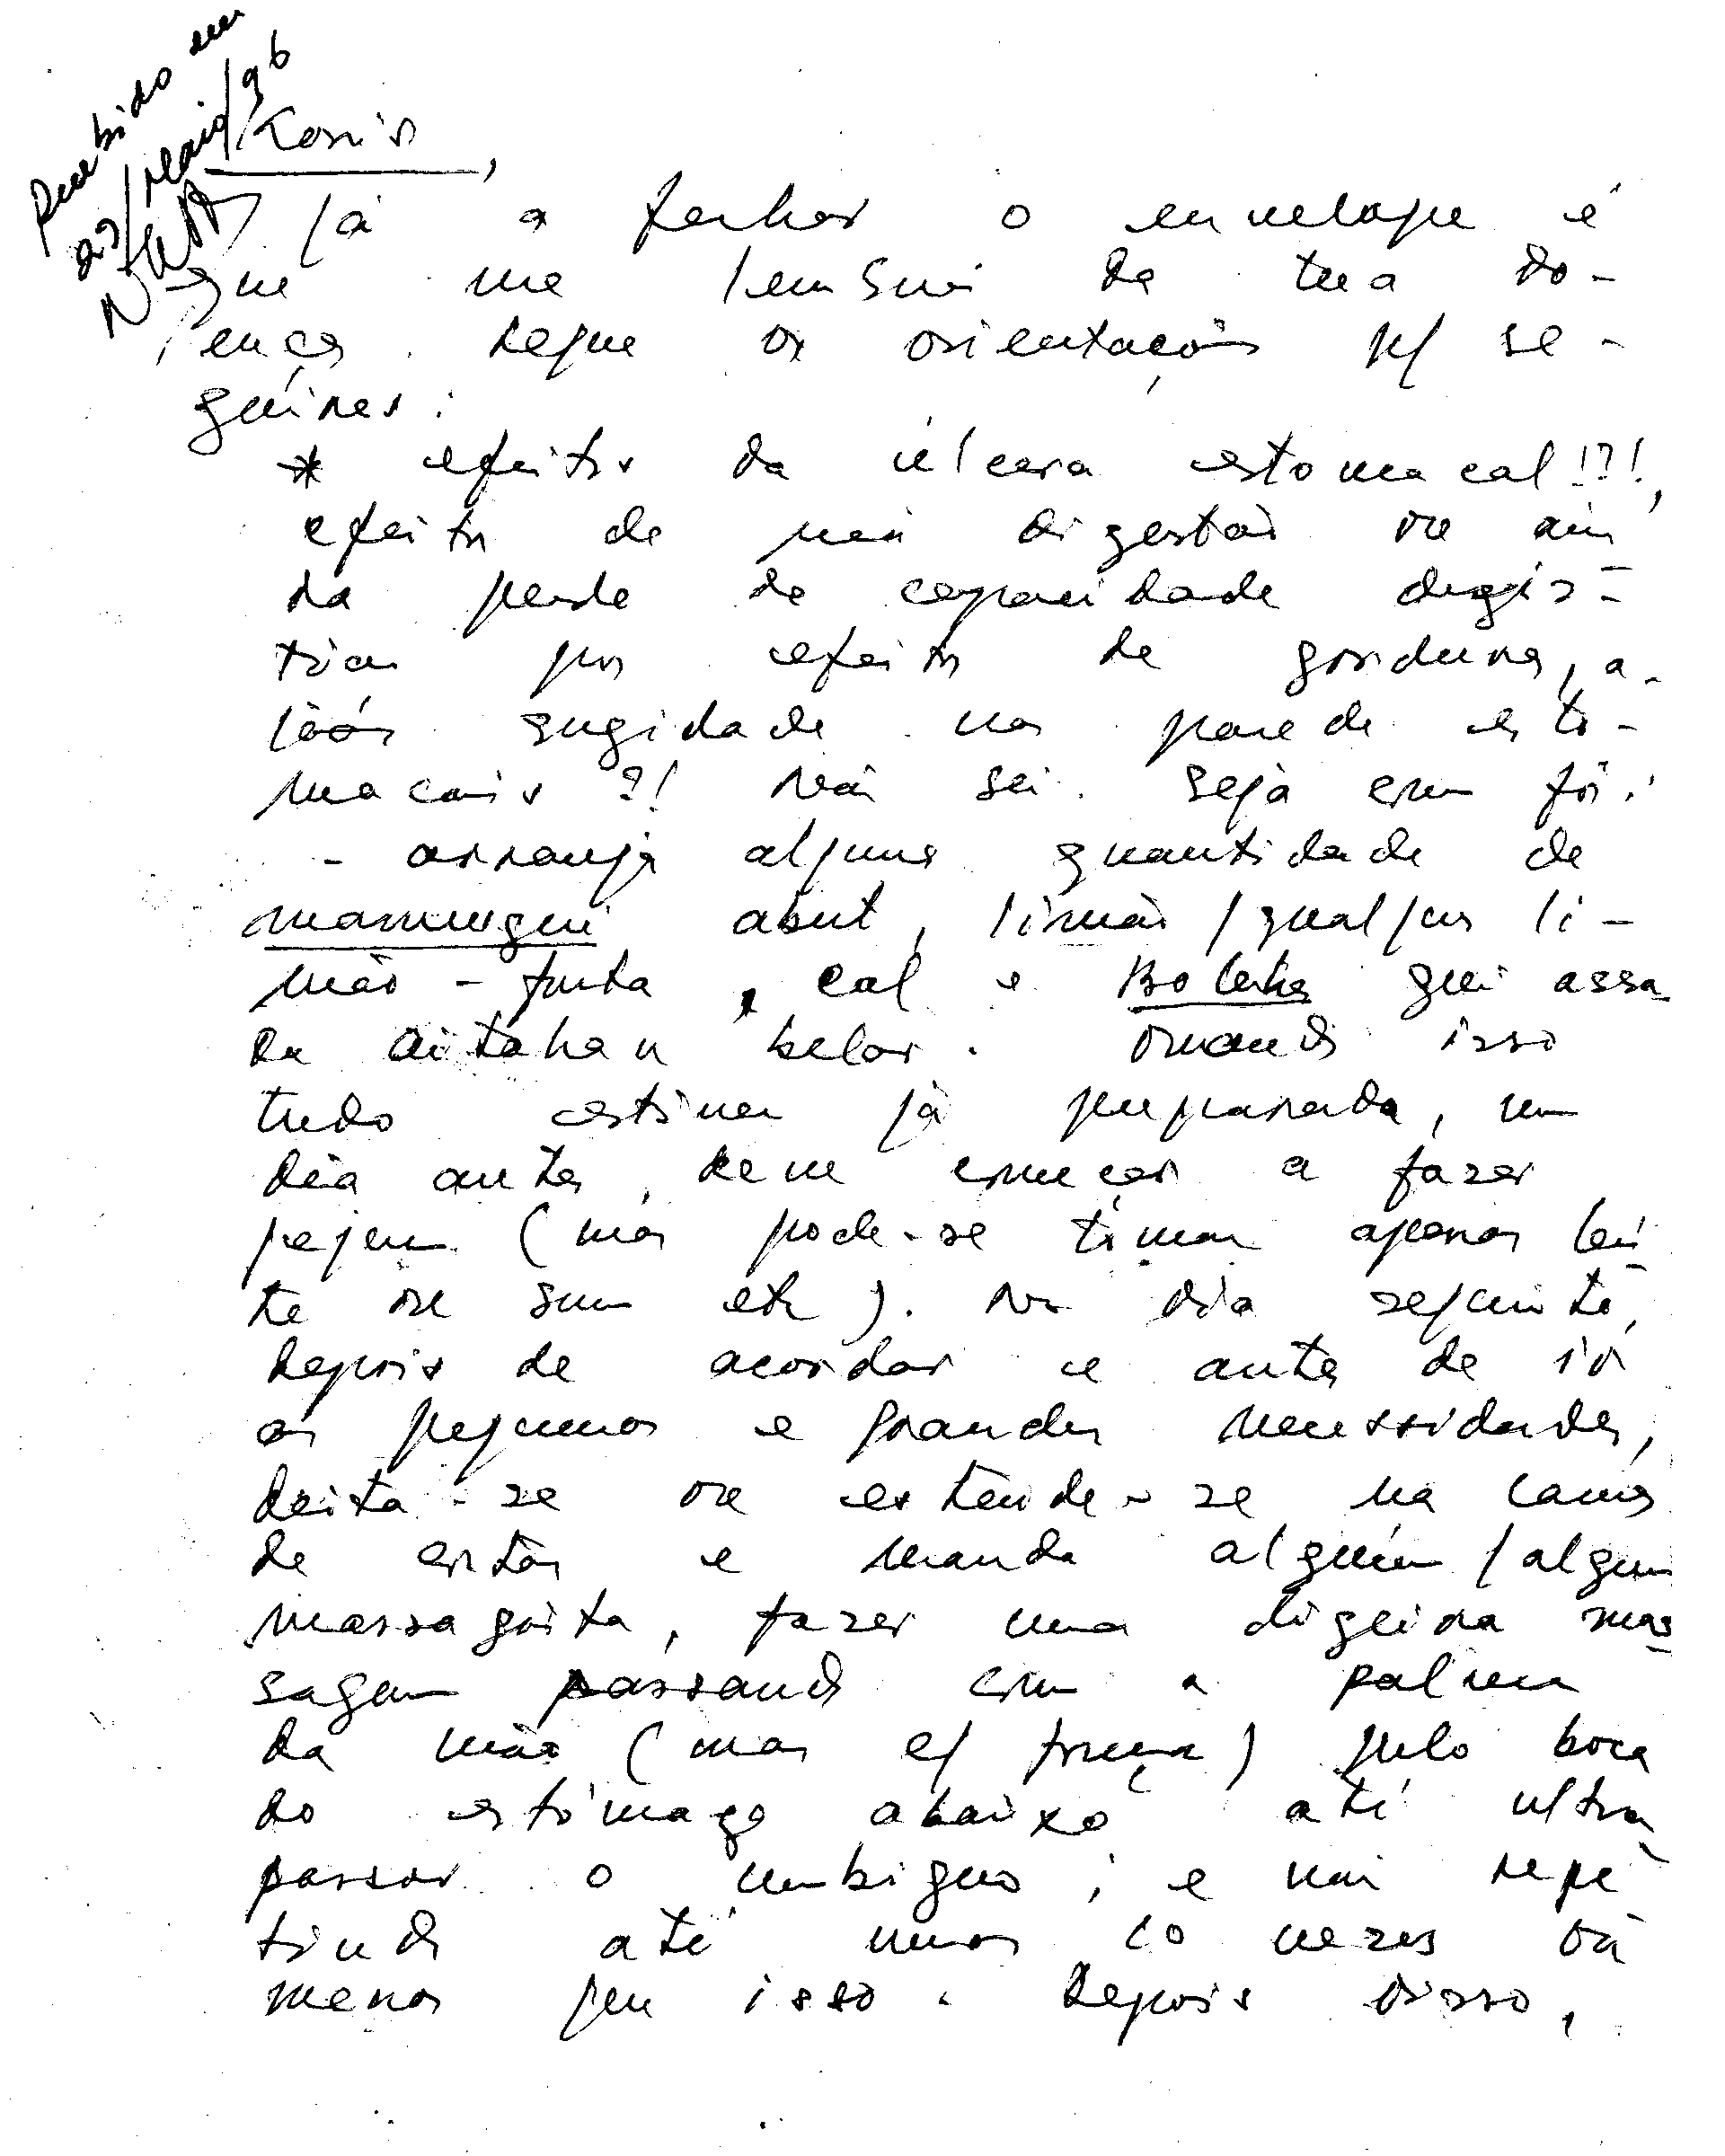 Recebido em
23/Maio/96
Konis,
Já a fechar o envelope é
que me lembrei da tua do-
ença. Segue as orientações p/ se-
guires:
* efeitos da úlcera estomacal!?!,
efeito de má digestão ou ain
da perda de capacidade diges-
tiva por efeito de gorduras, a-
sugidade nas parede esto-
macais?! Não sei. Seja como fôr:
- arranja alguma quantidade de
mamungui abut, limão/qualquer li-
mão - fruta, cal e Boleha gui assa
da aitahan kelor. Quando isso
tudo estiver já preparada, um
dia antes, deve começar a fazer
jejum (mas pode-se tomar apenas lei
te ou sum etc). No dia seguinte,
depois de acordar e antes de ir
as pequenas e grandes necessidades,
deita-se ou estende-se na cama
de costas e manda alguém/algum
massagista, fazer uma ligeira mas
sagem passando com a palma
da mão (mas c/ força) pelo boca
do estômago abaixo até ultra
passar o umbiguo; e vai repe
tindo até umas 10 vezes ou
menos que isso. Depois disso,